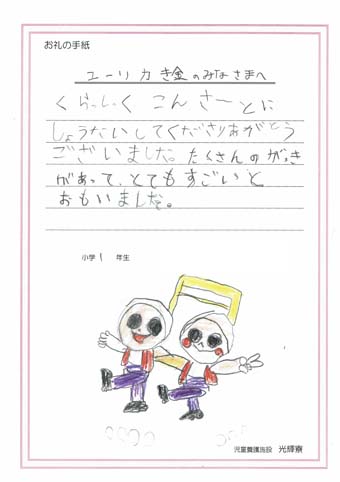 お礼の手紙
ユーリカ基金のみなさまへ
くらっしっく こんさーとに
しょうたいしてくださりありがとう
ございました。たくさんのがっき
があって、とてもすごいと
おもいました。
小学1年生
児童養護施設 光輝寮